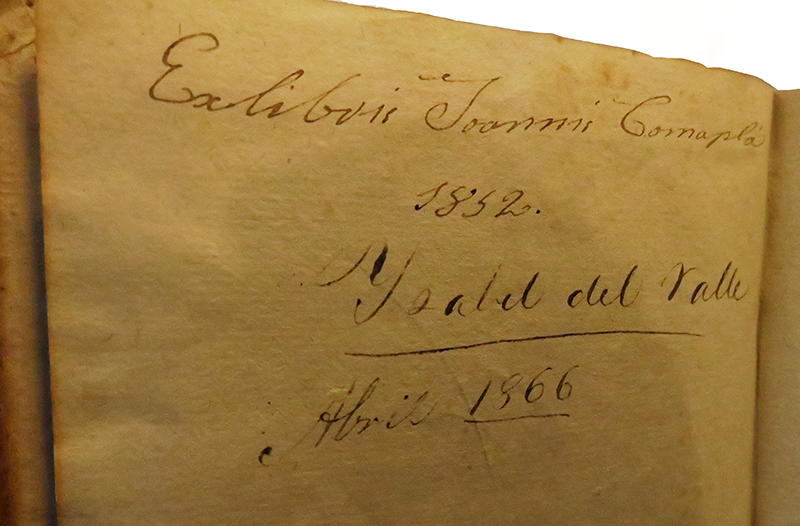 Exlibris Joannis Comaplà
1852.
Ysabel del Valle
Abril 1866